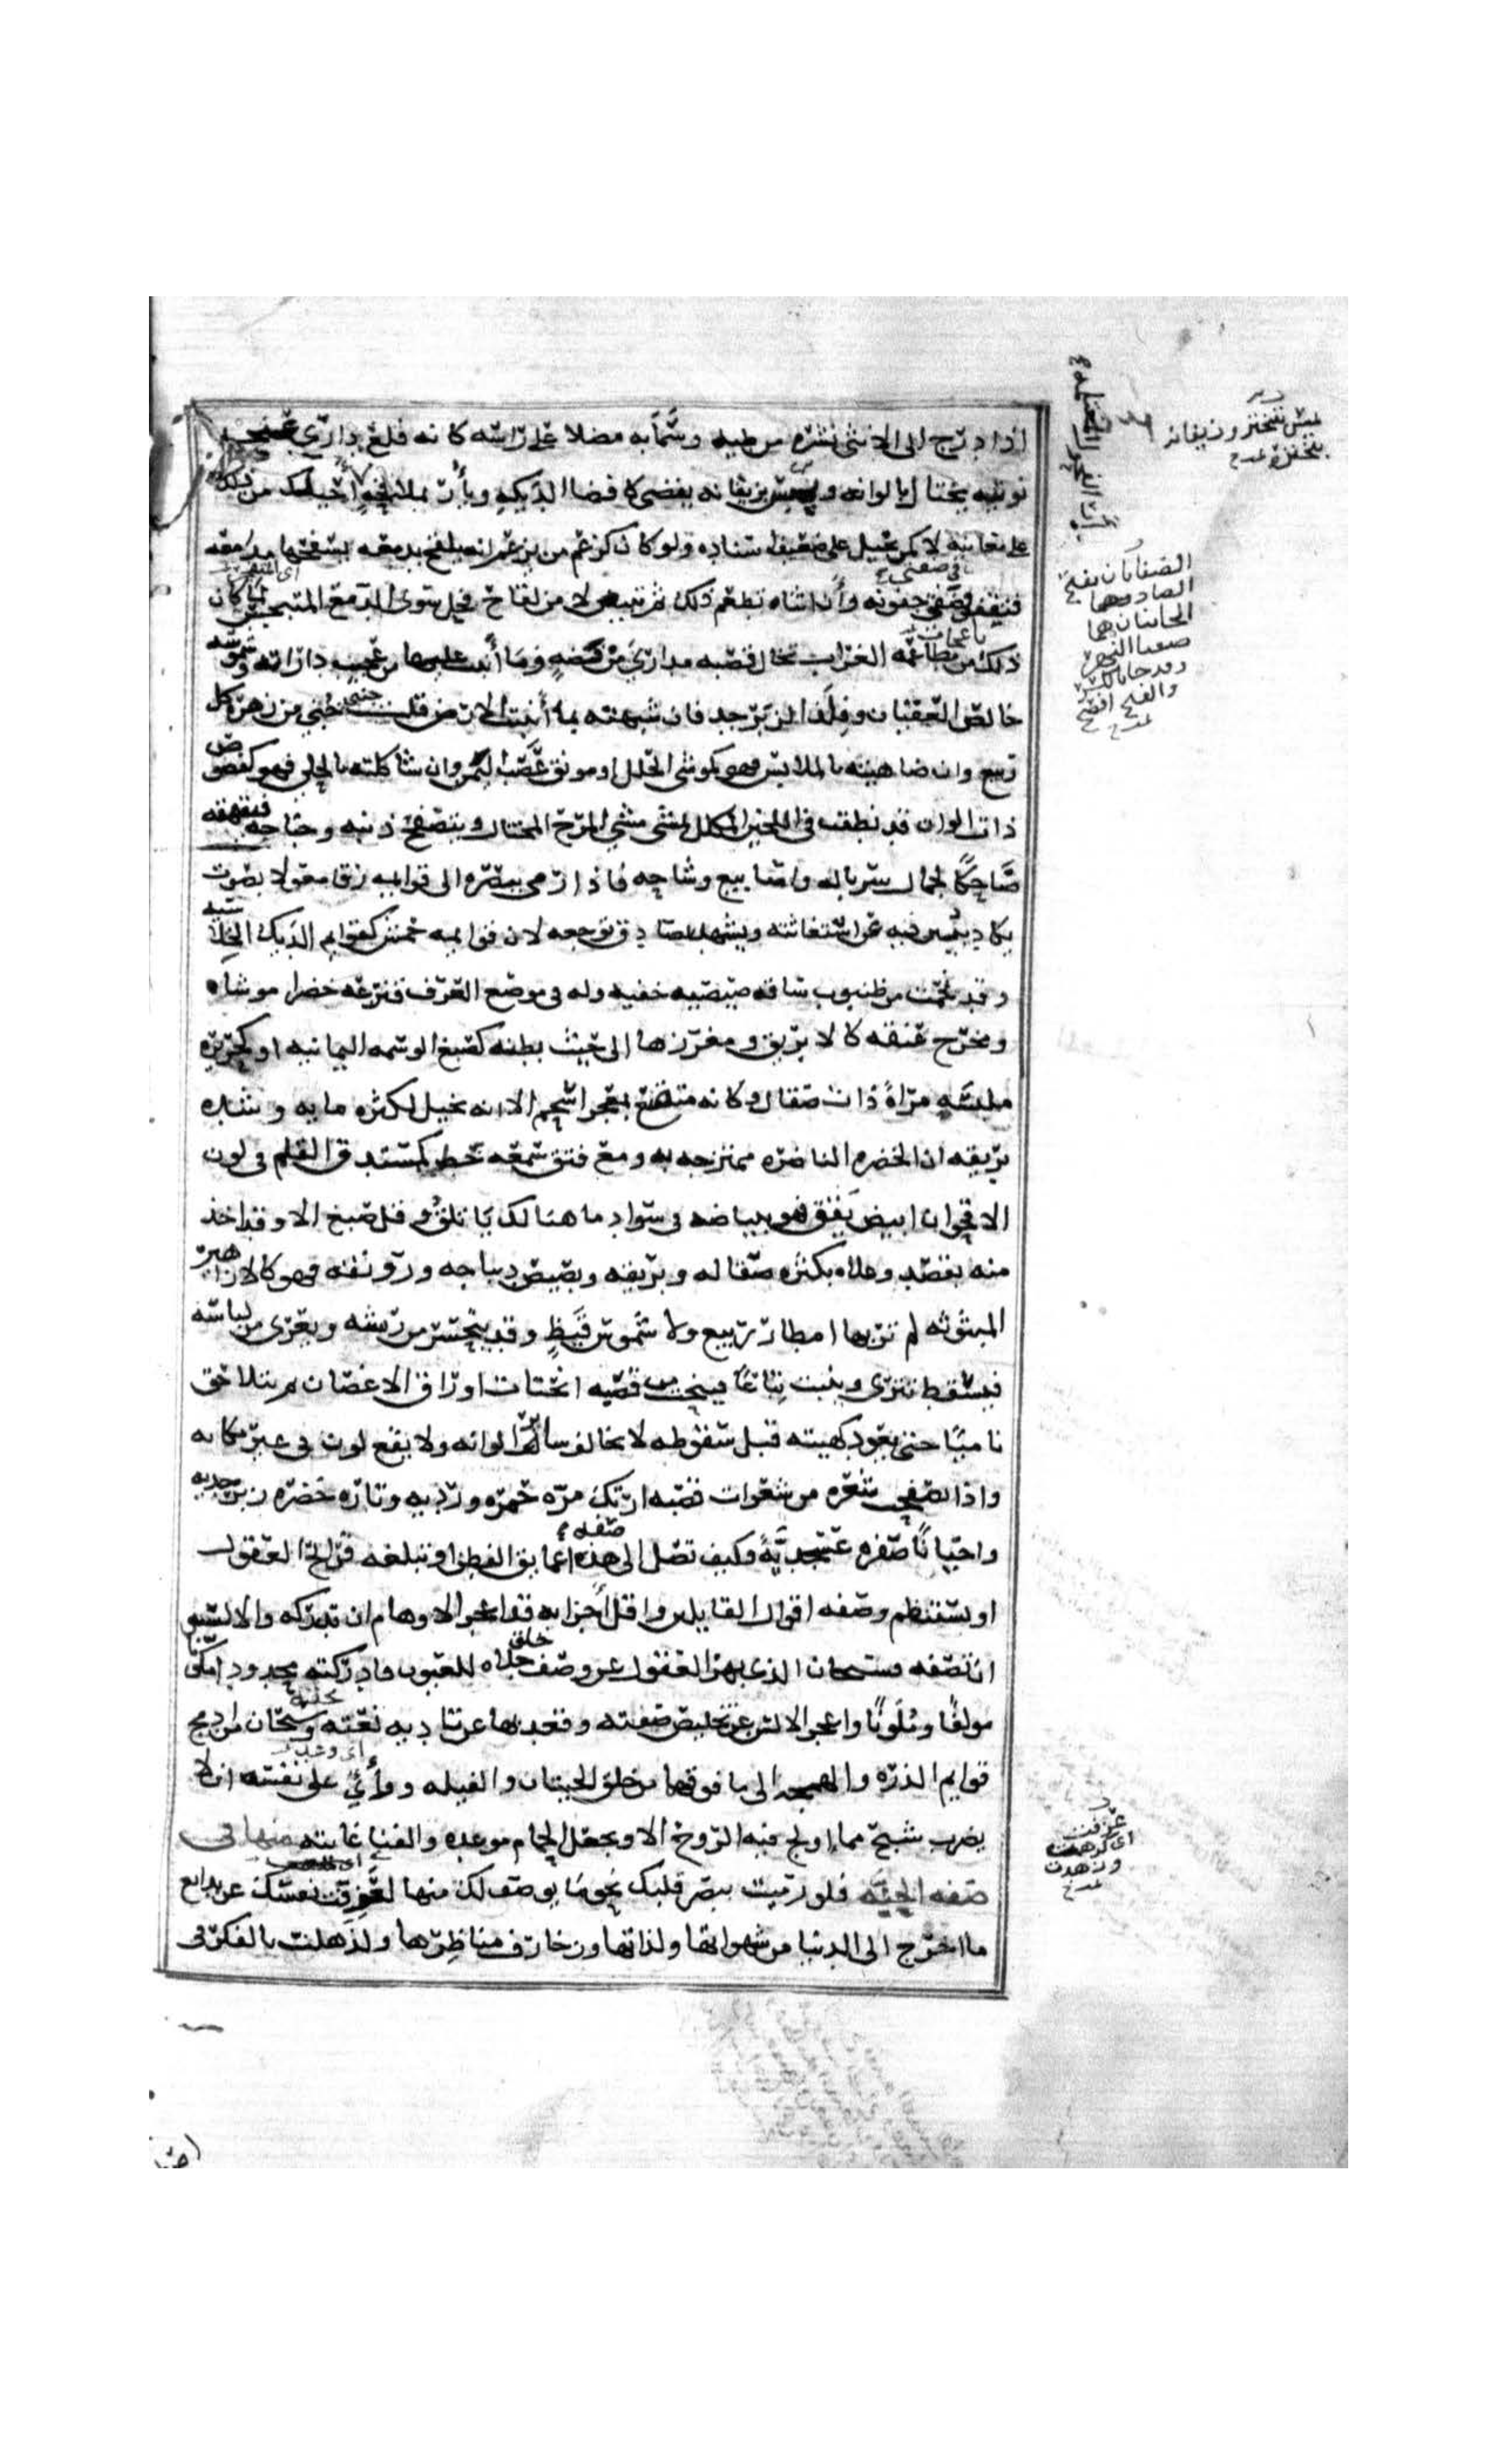 اذا درج الى الانثى نشره من طيه وسما به مطلا على راسه كانه قلع داري عنجه
نوتيه يختال بالوانه ويميس بزيفانه يفضى كافضا الديكه ويأر بملاقحه احيلك من ذلك
على معاينه لا كمن يحيل على ضعيف اسناده ولو كان كزعم من يزعم انه يلقح بدمعه تسفحها مدامعه
فتقف في ضفتي جفونه وأن انثاه تطعم ذلك ثم تبيض لا من لقاح فحل سوى الدمع المتبجس لما كان
ذلك من مطاعمه الغراب تخال قصبه مداري من فضه وما أنبت عليها من عجيب داراته وشموسه
خالص العقيان وفلذ الزبرجد فان شبهته بما أنبتت الارض قلت جنى جني من زهرة كل
ربيع وان ضاهيته بالملابس فهو كموشي الحلل او مونق عصب اليمن وان شاكلته بالحلي فهو كفصوص
ذات الوان قد نطقت في اللجين المكلل يمشي مشي المرح المختال ويتصفح ذنبه وجناحه فيقهقه
ضاحكًا لجمال سرباله واصابيع وشاحه فاذا رمى ببصره الى قوايمه زقا معولا بصوت
يكاد يبين عن استغاثته ويشهد بصادق توجعه لان قوايمه حمش كقوايم الديكه الخلاسيه
وقد نجمت من ظنبوب ساقه صيصيه خفيه وله في موضع العرف قنزعه خضرا موشاه
ومخرج عنقه كالابريق ومغرزها الى حيث بطنه كصبغ الوسمه اليمانيه او كحريره
ملبسه مرآة ذات صقال وكانه متلفع بمعجر اسحم الا انه يخيل لكثره مايه وشده
بريقه ان الخضره الناضره ممتزجه به ومع فتق سمعه خط كمستدق القلم في لون
الاقحوان ابيض يقق فهو ببياضه في سواد ما هنالك ياتلق وقل صبغ الا وقد اخذ
منه بقسط وعلاه بكثره صقاله وبريقه وبصيص ديباجه ورونقه فهو كالازاهير
المبثوثه لم تربها امطار ربيع ولا شموس قيظ وقد يتحسر من ريشه ويعرى من لباسه
فيسقط تترى وينبت تباعًا فينحت من قصبه انحتات اوراق الاغصان ثم يتلاحق
ناميًا حتى يعود كهيئته قبل سقوطه لا يخالف ساير الوانه ولا يقع لون في غير مكانه
واذا تصفحت شعره من شعرات قصبه ارتك مره حمره ورديه وتاره خضره زبرجديه
واحيانًا صفره عسجديةً وكيف تصل الى صفه هذا عمايق الفطن او تبلغه قرايح العقول
او تستنظم وصفه اقوال القايلين واقل اجزايه قد اعجز الاوهام ان تدركه والالسنه
ان تصفه فسبحان الذي بهر العقول عن وصف خلق جلاه للعيون فادركته محدودا مكونا
مولفًا وملونًا واعجز الالسن عن تلخيص صفته وقعد بها عن تاديه نعته وسبحان من ادمج
قوايم الذره والهمجه الى ما فوقها من خلق الحيتان والفيله ووأى على نفسه ان لا
يضرب شبح مما اولج فيه الروح الا وجعل الحمام موعده والفنا غايته منها في
صفه الجنه فلو رميت ببصر قلبك نحو ما يوصف لك منها لعزفت نفسك عن بدايع
ما اخرج الى الدنيا من شهواتها ولذاتها وزخارف مناظرها ولذهلت بالفكر في
الضفتان بفتح
الضاد وهما
الجانبان هما
ضفتا النهر
وقد جا بالكسر
والفتح افصح
عزفت
اى كرهت
وزهدت